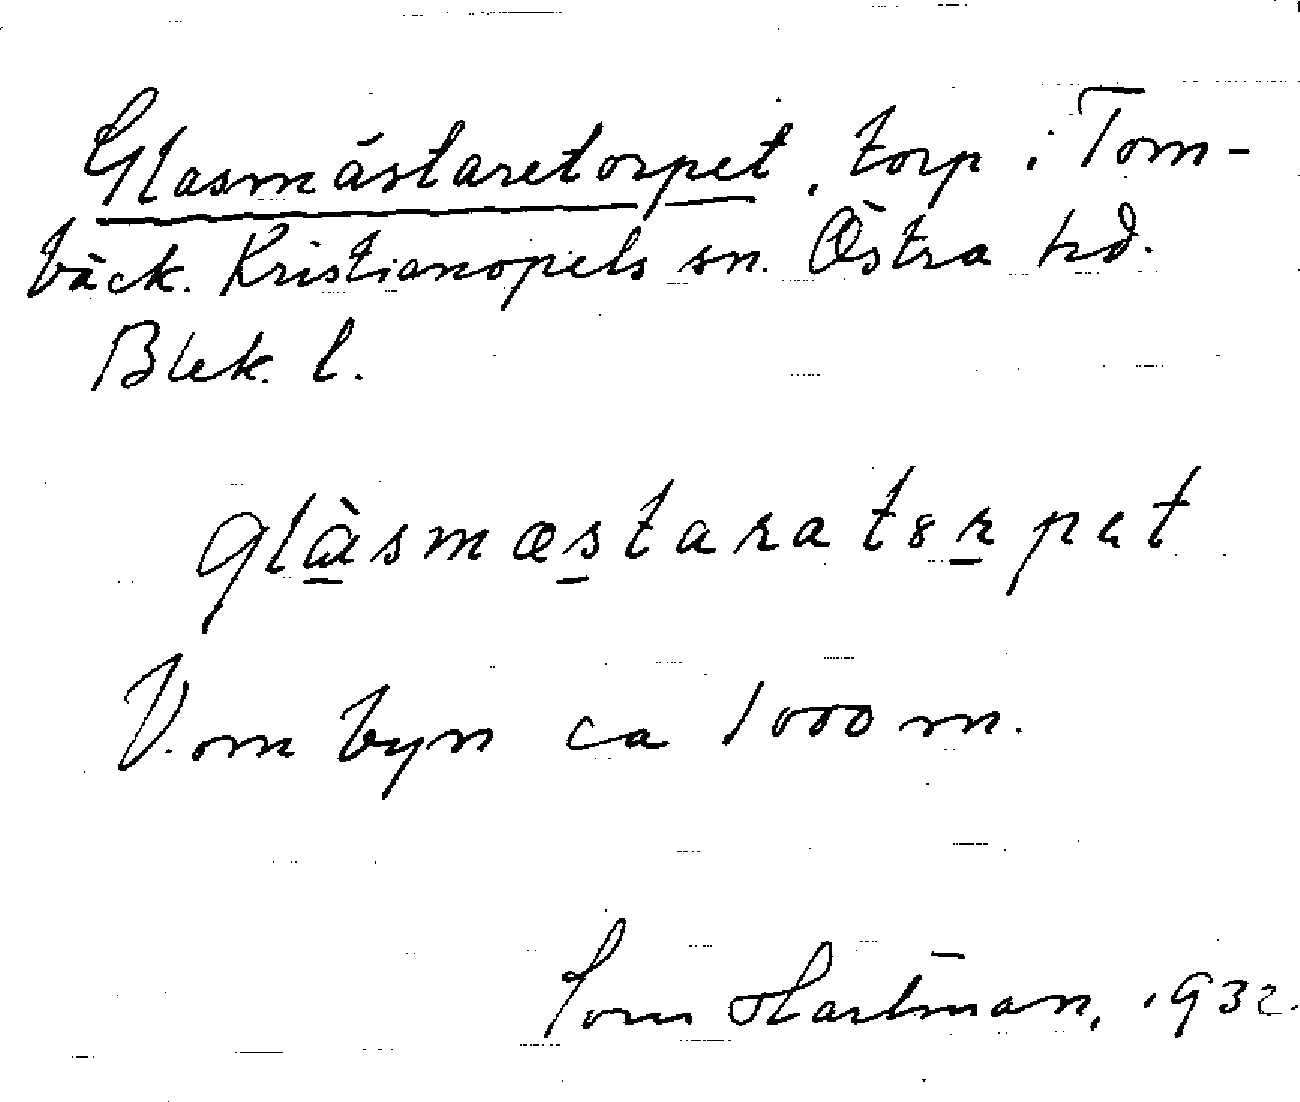 Glasmästaretorpet, torp i Tom-
bäck. Kristianopels sn. Östra hd.
Blek. l.
glàsmæstaratərpət
V. om byn ca 1000 m.
Hartman, 1932.